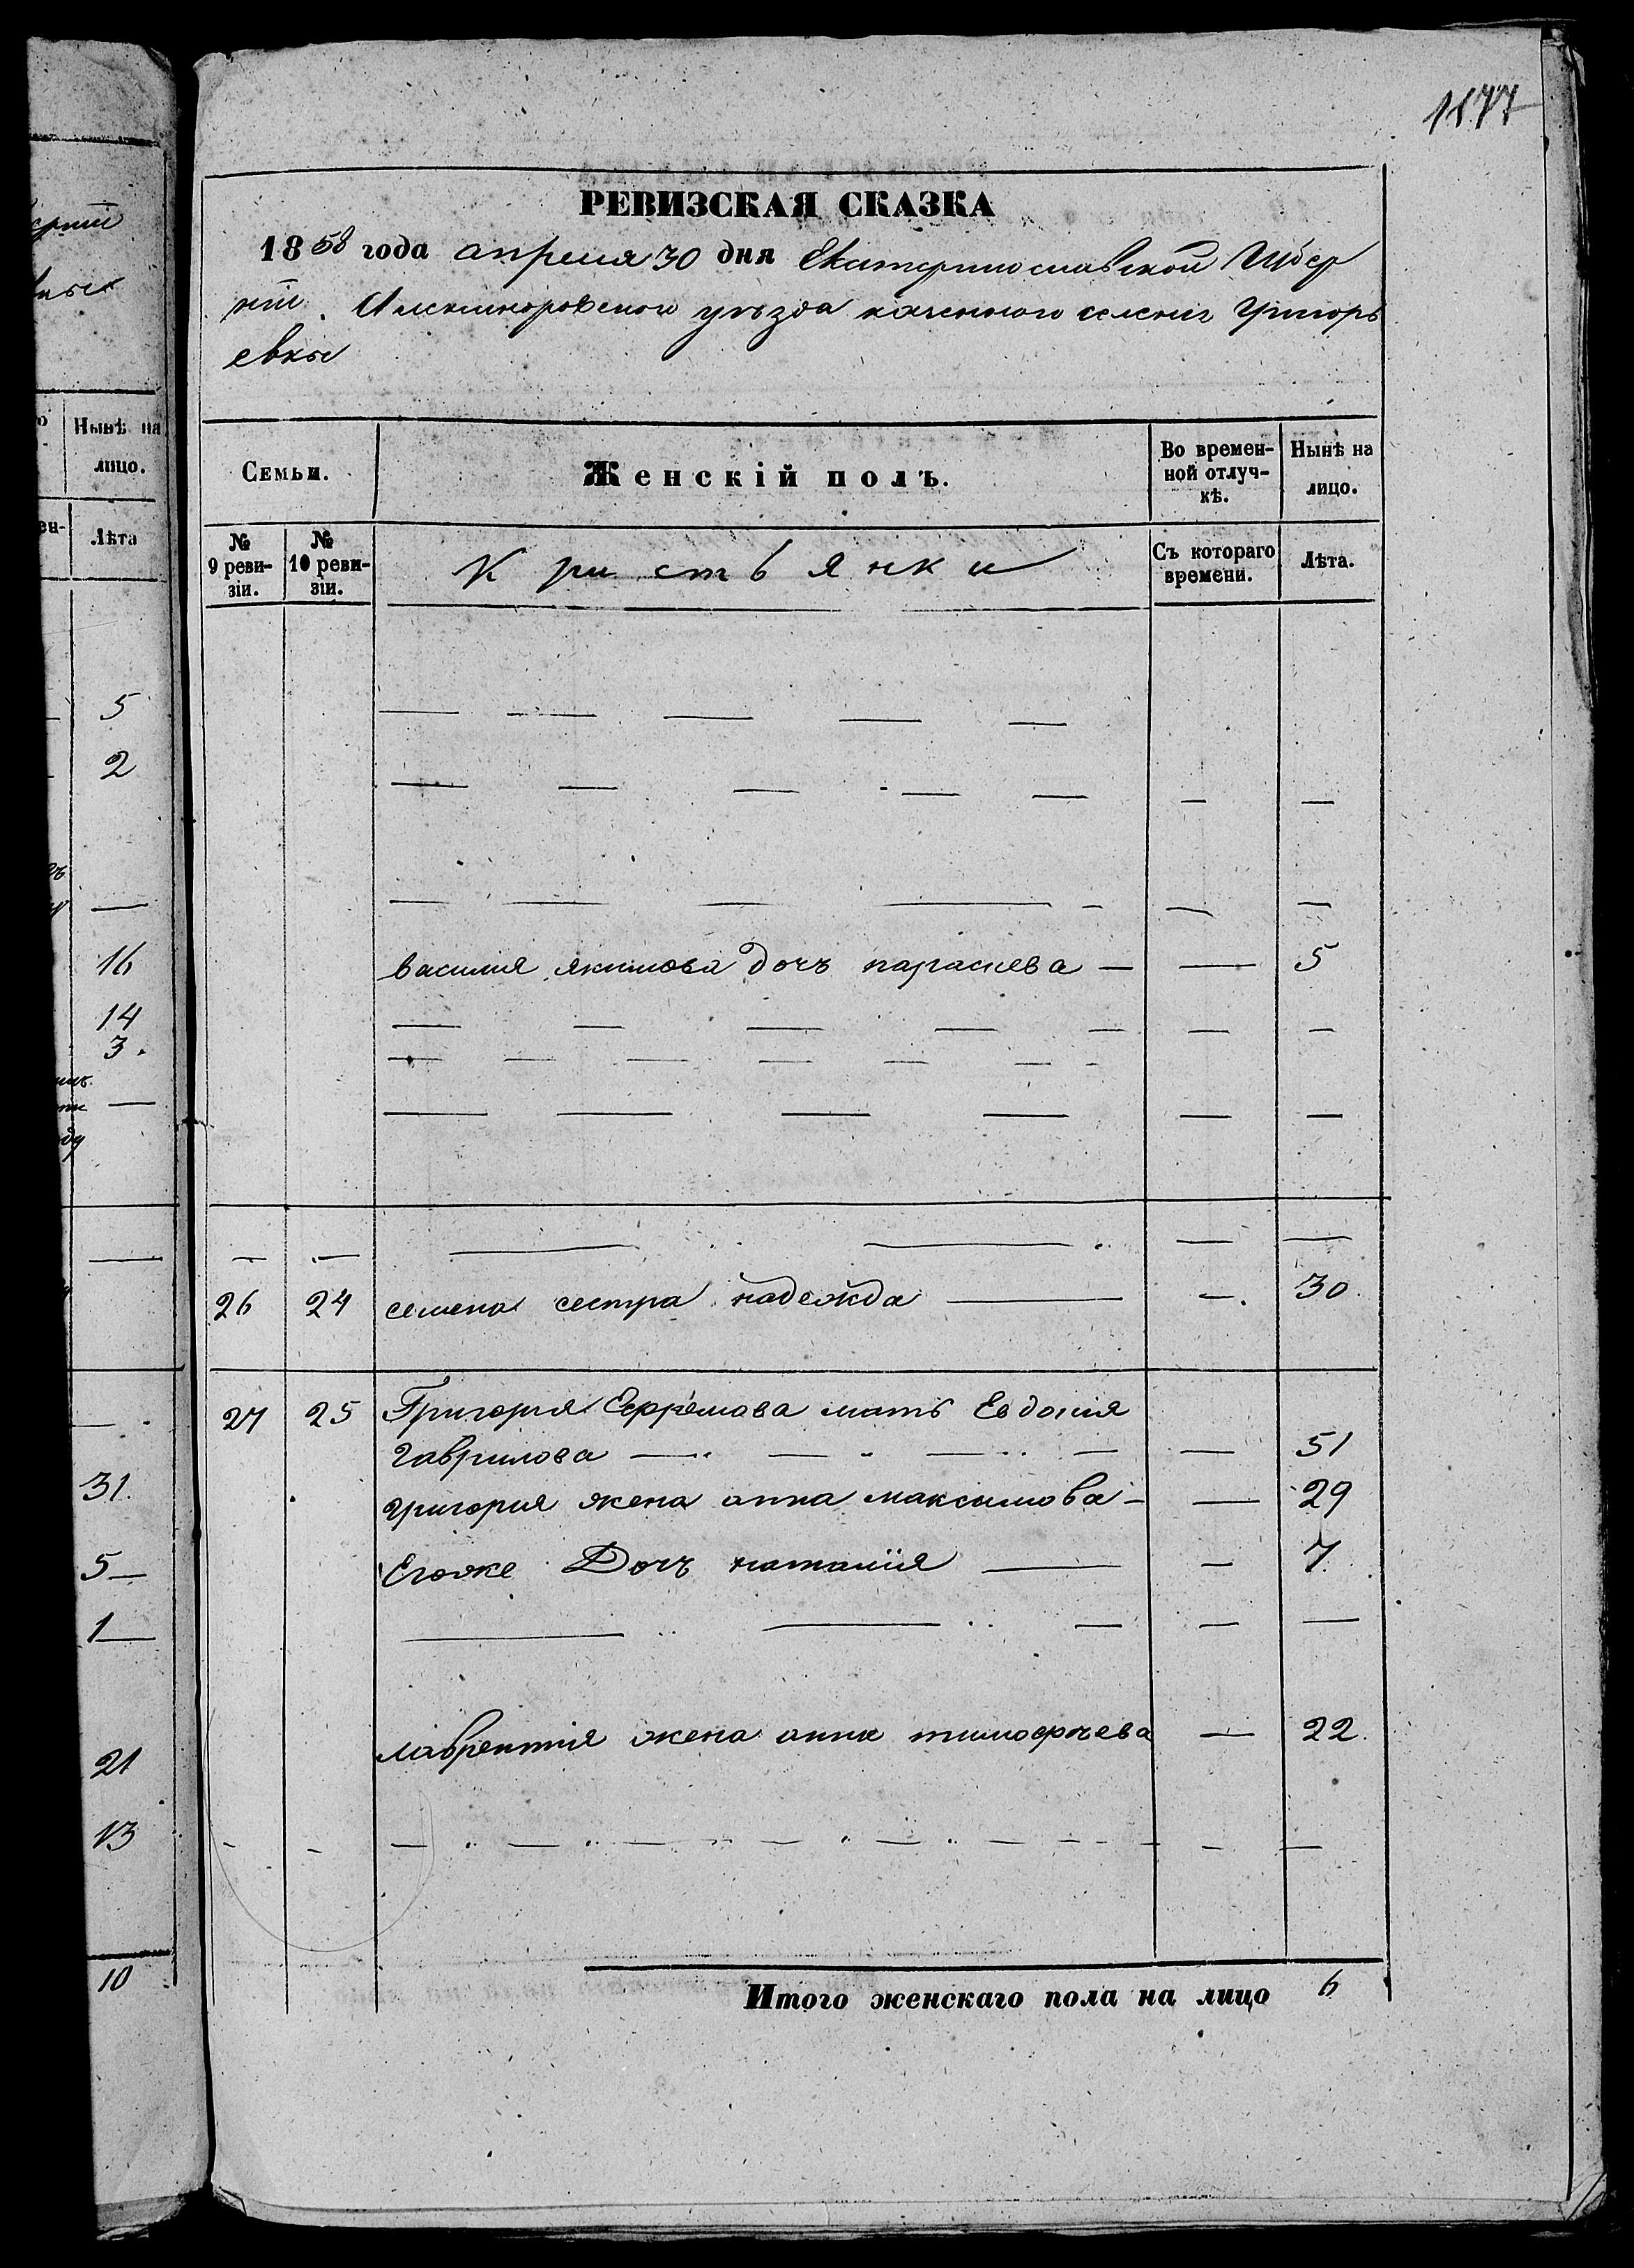 1177
РЕВИЗСКАЯ СКАЗКА
1858 года апреля 30 дня Екатеринославской Губер
нии. Александровского уѣзда казенного селения Григорь
евки
Семьи.
Женскій полъ.
Во времен-
ной отлуч-
кѣ.
Нынѣ на
лицо.
№
9 реви-
зіи.
№
10 реви-
зіи.
Кристьянки
Съ котораго
времени.
Лѣта.
василия якимова дочъ параскева — — 5
26 24 семена сестра надежда — —. 30.
27 25 Григория Ефремова мать Евдокия
гаврилова — — 51
григория жена анна максимова — — 29
Егоже Дочъ наталия — — 7.
лаврентия жена анна тимофѣева — 22.
Итого женскаго пола на лицо 6
Нынѣ на
лицо.
Лѣта
5
2
—
16
14
3.
—
—
31.
5—
1—
21
13
10